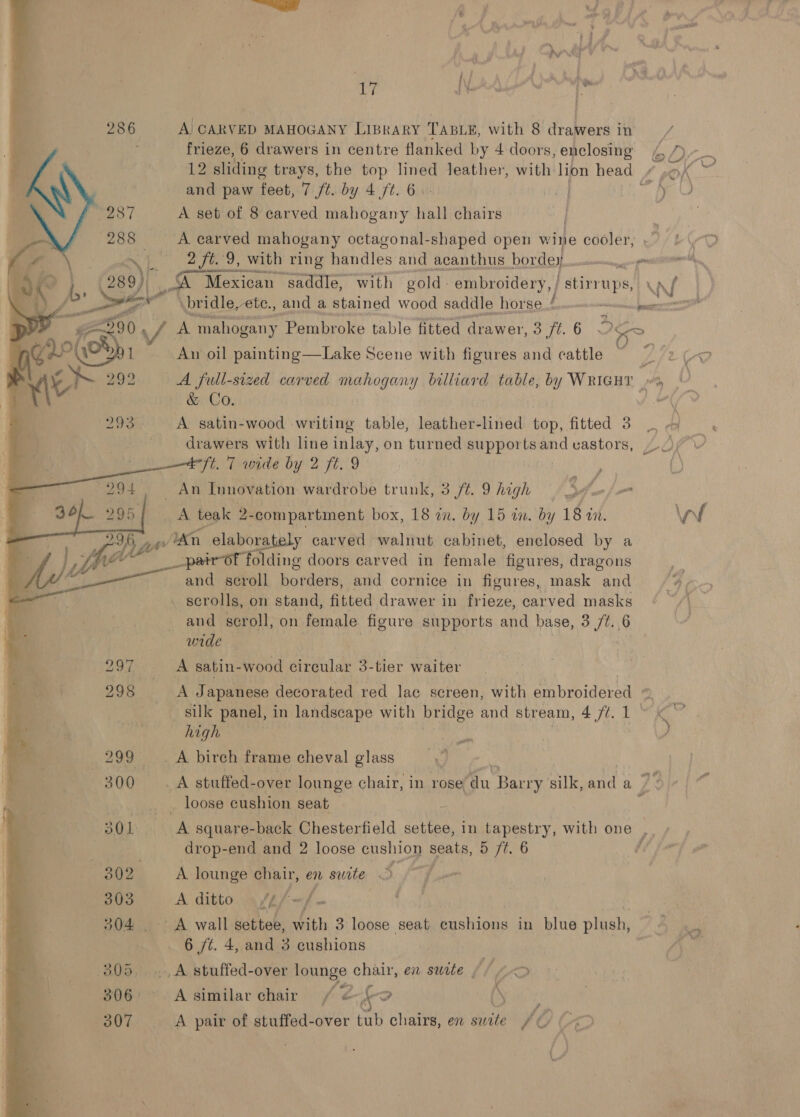 17
286 A CARVED MAHOGANY LIBRARY TABLE, with 8 drawers in
frieze, 6 drawers in centre flanked by 4 doors, enclosing
12 sliding trays, the top lined leather, with lion head
and paw feet, 7 ft. by 4 ft. 6
287 A set of 8 carved mahogany hall chairs
288 A carved mahogany octagonal-shaped open wine cooler,
2 ft. 9, with ring handles and acanthus border
289 A Mexican saddle, with gold embroidery, stirrups,
bridle, etc., and a stained wood saddle horse
290 A mahogany Pembroke table fitted drawer, 3 ft. 6
291 An oil painting—Lake Scene with figures and cattle
292 A full-sized carved mahogany billiard table, by WRIGHT
& Co.
293 A satin-wood writing table, leather-lined top, fitted 3
drawers with line inlay, on turned supports and castors,
4 ft. 7 wide by 2 ft. 9
294 An Innovation wardrobe trunk, 3 ft. 9 high
295 A teak 2-compartment box, 18 in. by 15 in. by 18 in.
296 An elaborately carved walnut cabinet, enclosed by a
pair of folding doors carved in female figures, dragons
and scroll borders, and cornice in figures, mask and
scrolls, on stand, fitted drawer in frieze, carved masks
and scroll, on female figure supports and base, 3 ft. 6
wide
297 A satin-wood circular 3-tier waiter
298 A Japanese decorated red lac screen, with embroidered
silk panel, in landscape with bridge and stream, 4 ft. 1
high
299 A birch frame cheval glass
300 A stuffed-over lounge chair, in rose du Barry silk, and a
loose cushion seat
301 A square-back Chesterfield settee, in tapestry, with one
drop-end and 2 loose cushion seats, 5 ft. 6
302 A lounge chair, en suite
303 A ditto
304 A wall settee, with 3 loose seat cushions in blue plush,
6 ft. 4, and 3 cushions
305 A stuffed-over lounge chair, en suite
306 A similar chair
307 A pair of stuffed-over tub chairs, en suite